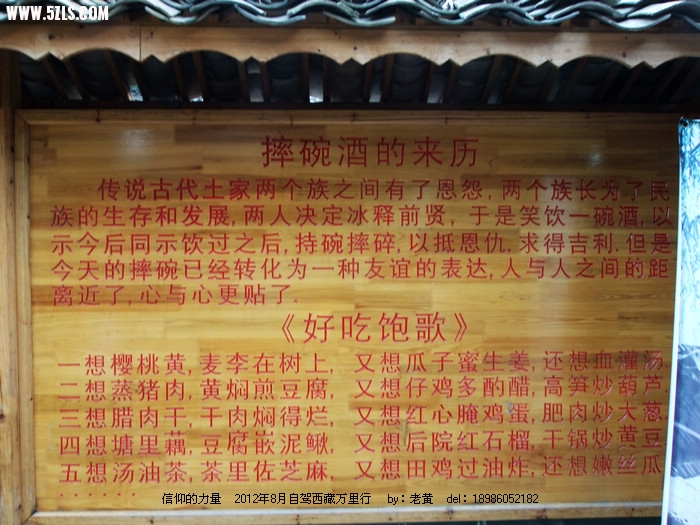 WWW.5ZLS.COM
摔碗酒的来历
传说古代土家两个族之间有了恩怨, 两个族长为了民
族的生存和发展,两人决定冰释前贤, 于是笑饮一碗酒,以
示今后同示饮过之后,持碗摔碎,以抵恩仇,求得吉利.但是
今天的摔碗已经转化为一种友谊的表达,人与人之间的距
离近了,心与心更贴了.
《好吃饱歌》
一想樱桃黄,麦李在树上, 又想瓜子蜜生姜,还想血灌汤.
二想蒸猪肉,黄焖煎豆腐, 又想仔鸡多酌醋,高笋炒葫芦
三想腊肉干,干肉焖得烂, 又想红心腌鸡蛋,肥肉炒大葱.
四想塘里藕,豆腐嵌泥鳅, 又想后院红石榴,干锅炒黄豆
五想汤油茶,茶里佐芝麻, 又想田鸡过油炸,还想嫩丝瓜
......
信仰的力量 2012年8月自驾西藏万里行 by：老黄 del：18986052182